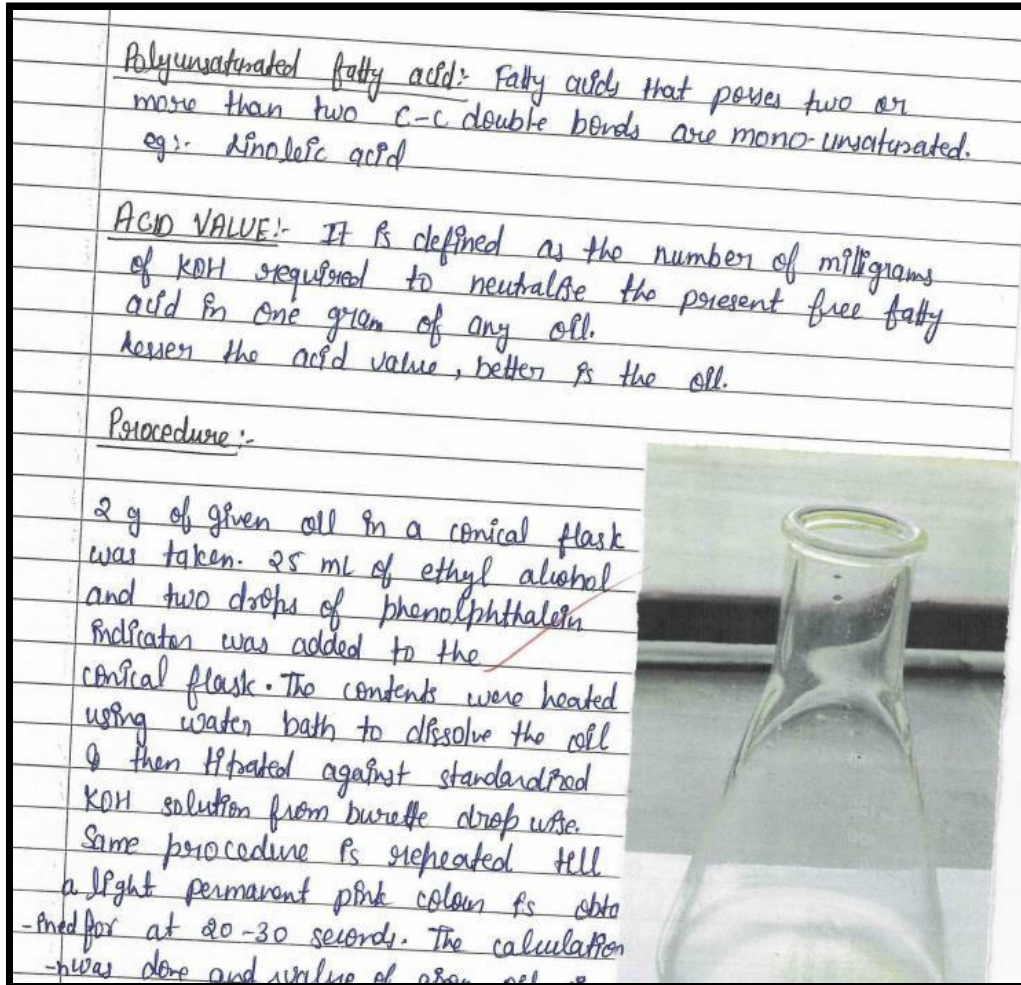 Polyunsaturated fatty acid:- Fatty acids that posses two or
more than two C-C double bonds are mono-unsaturated.
eg:- Linoleic acid
ACID VALUE:- It is defined as the number of milligrams
of KOH required to neutralise the present free fatty
acid in one gram of any oil.
Lesser the acid value, better is the oil.
Procedure:-
2 g of given oil in a conical flask
was taken. 25 mL of ethyl alcohol
and two drops of phenolphthalein
indicator was added to the
conical flask. The contents were heated
using water bath to dissolve the oil
& then titrated against standardized
KOH solution from burette drop wise.
Same procedure is repeated till
a light permanent pink colour is obta
-ined for at 20-30 seconds. The calculation
-n was done and value of given oil